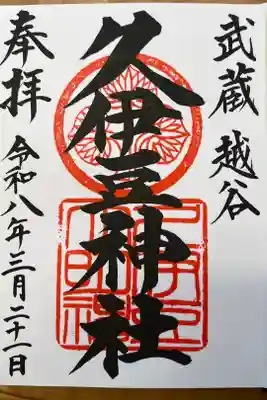 武蔵 越谷
久伊豆神社
奉拝
令和八年三月二十一日